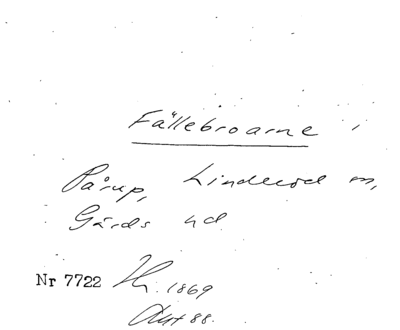 Fällebroarne i
Pårup, Linderöd m,
Gärds hd
Nr 7722 1869
88.